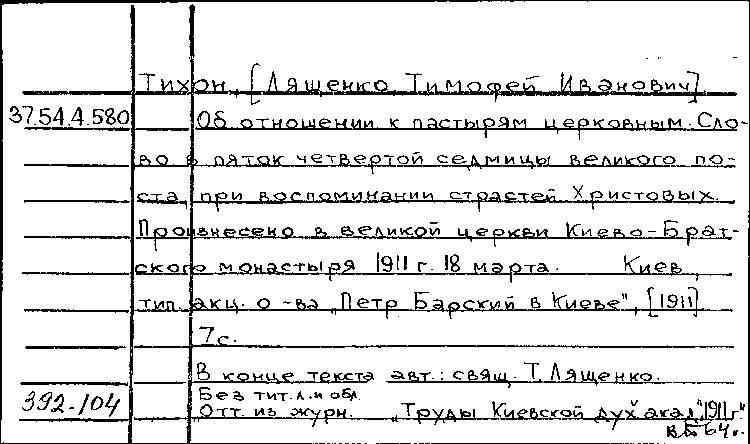 Тихон, [Лященко, Тимофей Иванович]
37.54.4.580 Об отношении к пастырям церковным. Сло-
во в пяток четвертой седмицы великого по-
ста, при воспоминании страстей Христовых.
Произнесено в великой церкви Киево-Брат-
ского монастыря 1911 г. 18 марта. Киев,
тип. акц. о-ва „Петр Барский в Киеве", [1911]
7 с.
В конце текста авт.: свящ. Т. Лященко.
Без тит. л. и обл.
392-104 Отт. из журн. „Труды Киевской дух. акад.", 1911 г.